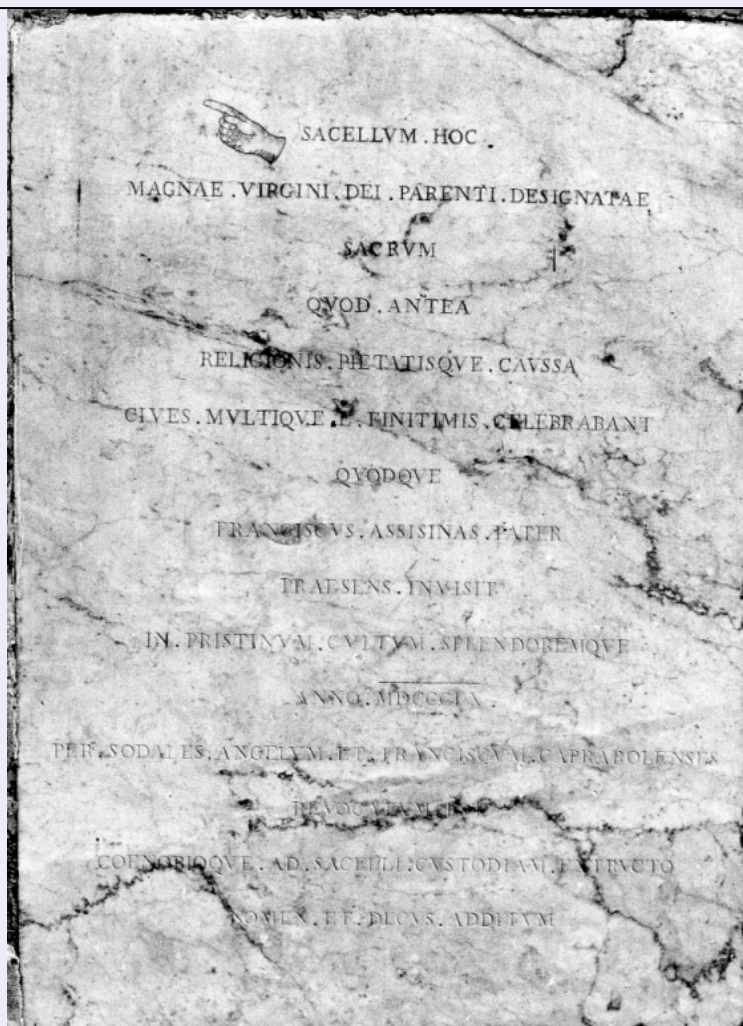 SACELLVM . HOC .
MAGNAE . VIRGINI . DEI . PARENTI . DESIGNATAE
SACRVM
QVOD . ANTEA
RELIGIONIS . PIETATISQVE . CAVSSA
CIVES . MVLTIQVE . E . FINITIMIS . CELEBRABANT
QVODQVE
FRANCISCVS . ASSISINAS . PATER
PRAESENS . INVISIT
IN . PRISTINVM . CVLTVM . SPLENDOREMQVE
ANNO . MDCCCLX .
PER . SODALES . ANGELVM . ET . FRANCISQVM . CAPRABOLENSES
REVOCATVM
COENOBIOQVE . AD . SACELLI . CVSTODIAM . EXTRVCTO
NOMEN . ET . DECVS . ADDITVM